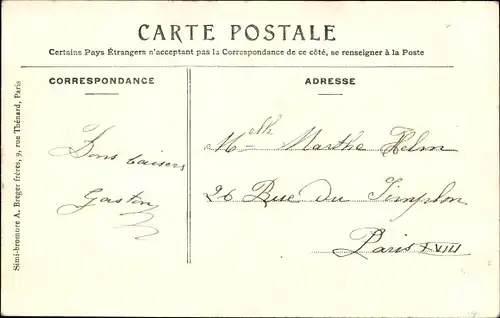 CARTE POSTALE
Certains Pays Étrangers n'acceptant pas la Correspondance de ce côté, se renseigner à la Poste
CORRESPONDANCE
Bons baisers
Gaston
ADRESSE
Melle Marthe Helm
26 Rue Du Simplon
Paris XVIII
Simi-bromure A. Breger frères, 9, rue Thénard, Paris